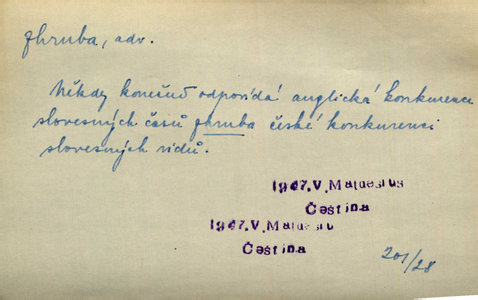 zhruba, adv.
Někdy konečně odpovídá anglická konkurence
slovesných časů zhruba české konkurenci
slovesných vidů.
1947.V. Mathesius
Čeština
1947.V. Mathesiu
Čeština
201/28